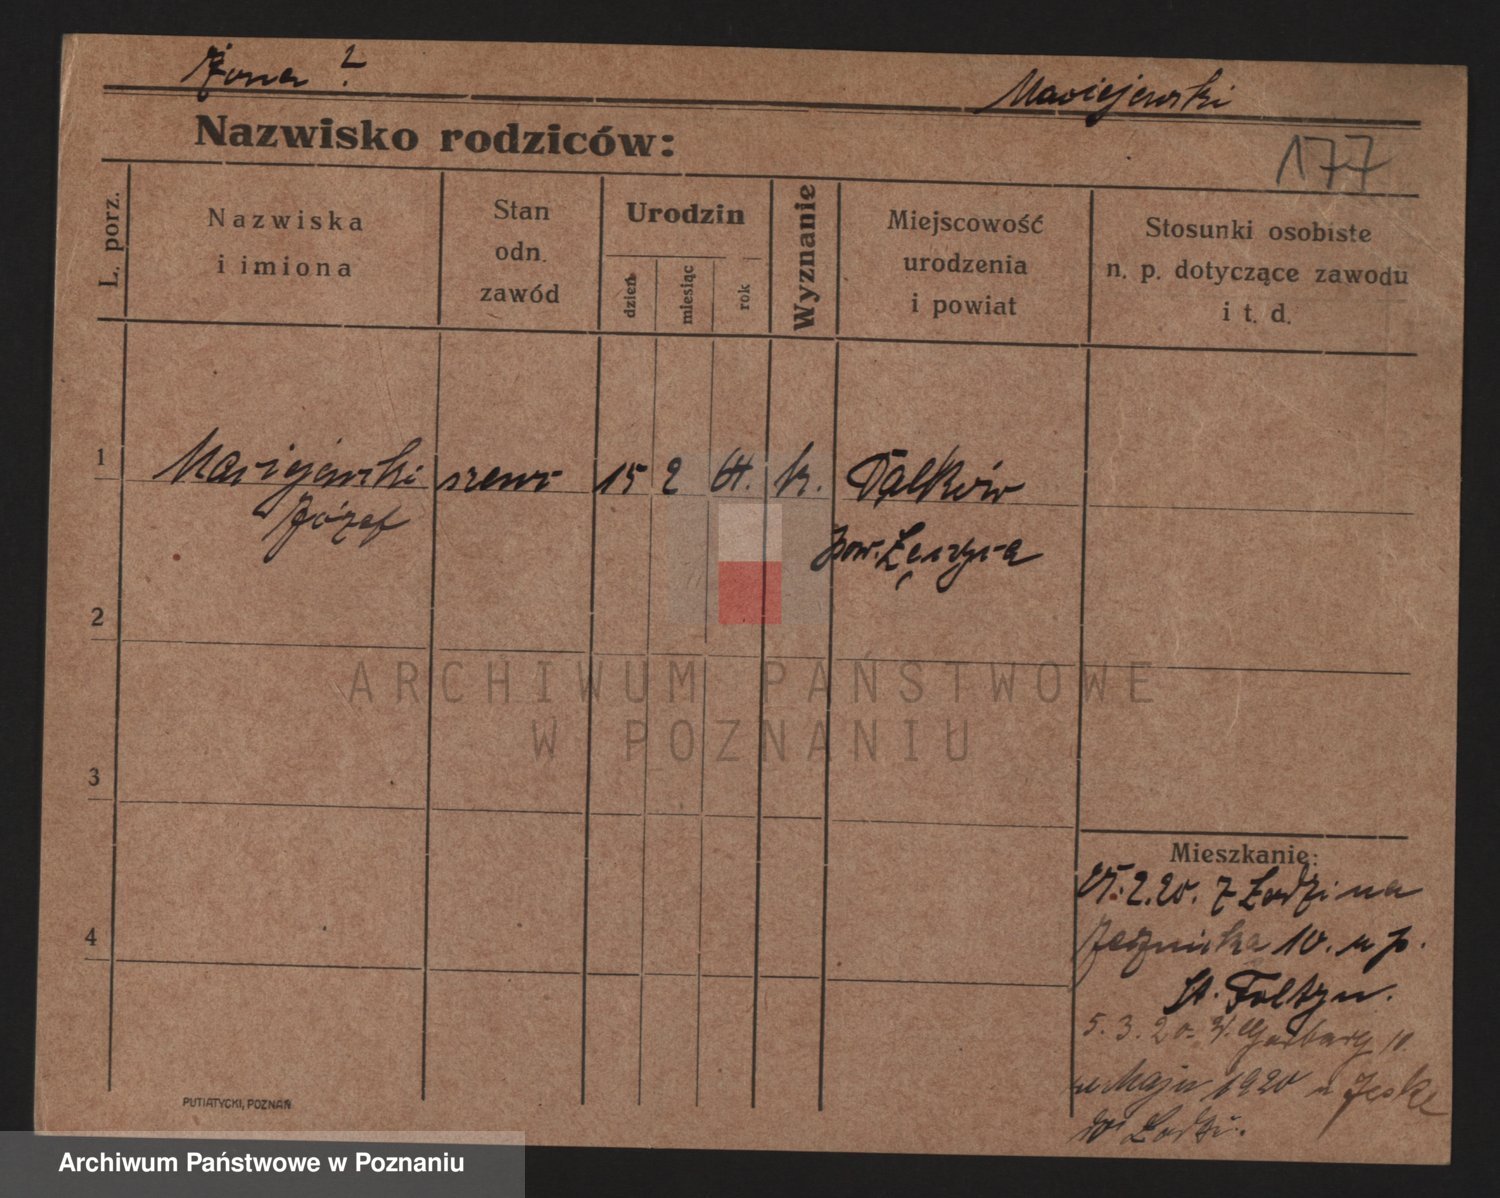 Żona ?
Maciejewski
177
Nazwisko rodziców:
L. porz.
Nazwiska
i imiona
Stan
odn.
zawód
Urodzin
dzień
miesiąc
rok
Wyznanie
Miejscowość
urodzenia
i powiat
Stosunki osobiste
n. p. dotyczące zawodu
i t. d.
1
Maciejewski szewc 15 2 64. k. Dalków
Józef
pow. Łęczyca
2
ARCHIWUM PAŃSTWOWE
W POZNANIU
3
Mieszkanie:
2.20. z Łodzi na
10. u p.
4
St. Fołtyn.
5. 3. 20. Garbary 10.
w Maju 1920 u Jeske
w Łodzi.
PUTIATYCKI, POZNAŃ
Archiwum Państwowe w Poznaniu